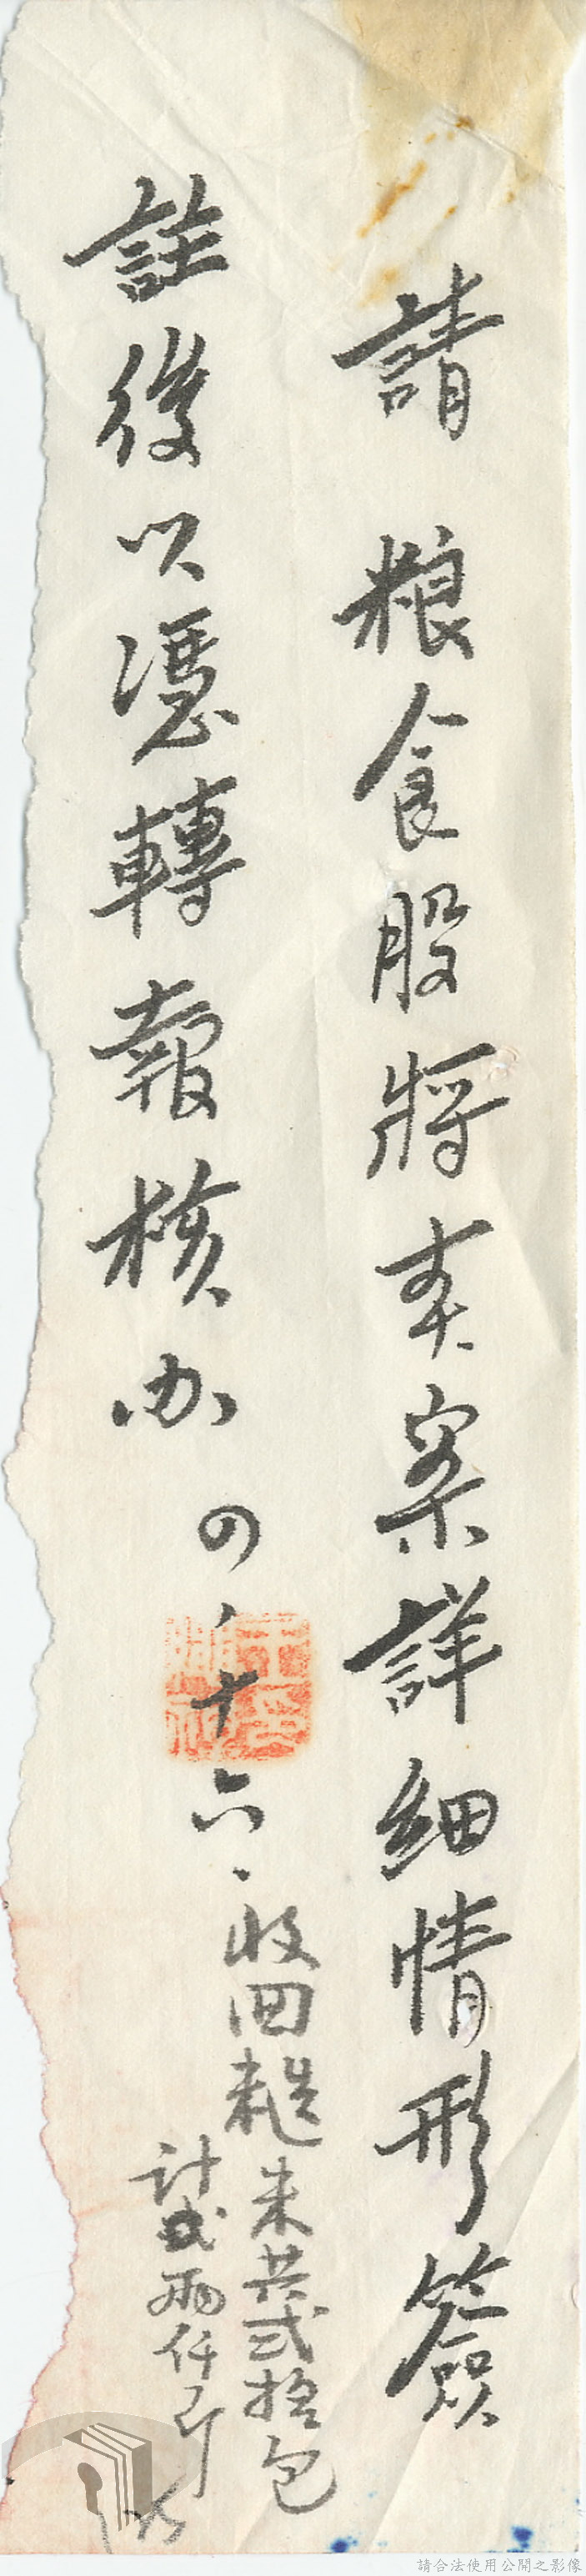 請 粮食股將本案詳細情形簽
註後以憑轉報核办
四、十六、
收回糙米共弍拾包
計 兩仟斤
請合法使用公開之影像